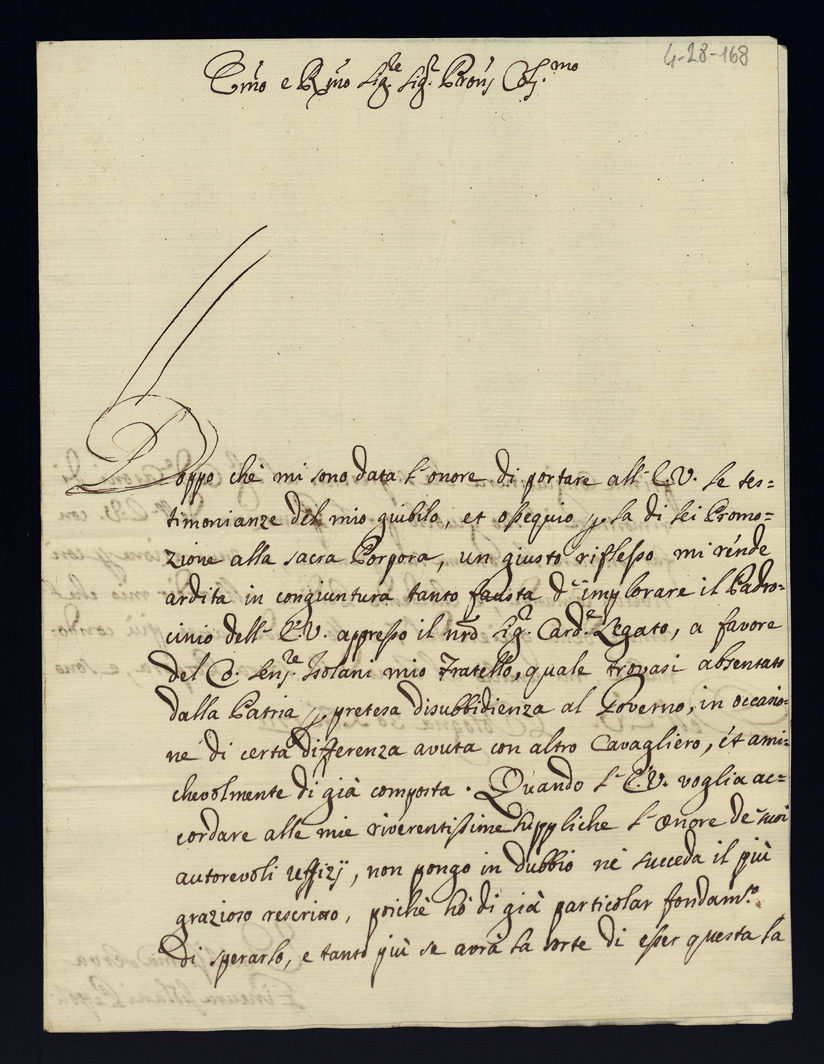 4-28-168
Emo e Rmo Sig.re Sig.r Pron Col.mo
Doppo chè mi sono data l'onore di portare all'E.V. le tes=
timonianze del mio giubilo, et ossequio p la di lei Promo=
zione alla sacra Porpora, un giusto riflesso mi rende
ardita in congiuntura tanto fausta d'implorare il Padro=
cinio dell'E.V. appresso il nrõ Sig.r Card.e Legato, a favore
del C. Sen.re Isolani mio Fratello, quale trovasi absentato
dalla Patria p pretesa disubbidienza al Governo, in occasio=
ne di certa differenza avuta con altro Cavagliero, ét ami=
chevolmente di già composta. Quando l'E.V. voglia ac=
cordare alle mie riverentissime suppliche l'onore de' suoi
autorevoli uffizij, non pongo in dubbio nè succeda il più
grazioso rescritto, poichè hò di già particolar fondam.to
di sperarlo, e tanto più se avrà la sorte di esser questa la